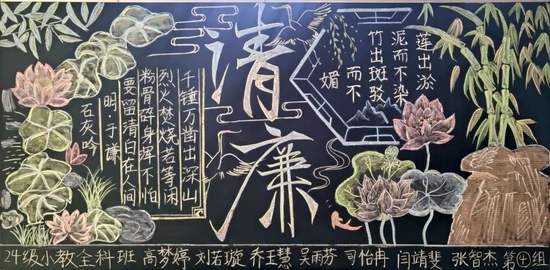 清廉
莲出淤
泥而不染
竹出斑驳
而不
媚
千锤万凿出深山
烈火焚烧若等闲
粉骨碎身浑不怕
要留清白在人间
明·于谦
石灰吟
24级小教全科班 高梦婷 刘若璇 乔王慧 吴雨芬 司怡冉 闫靖斐 张智杰 第㊉组